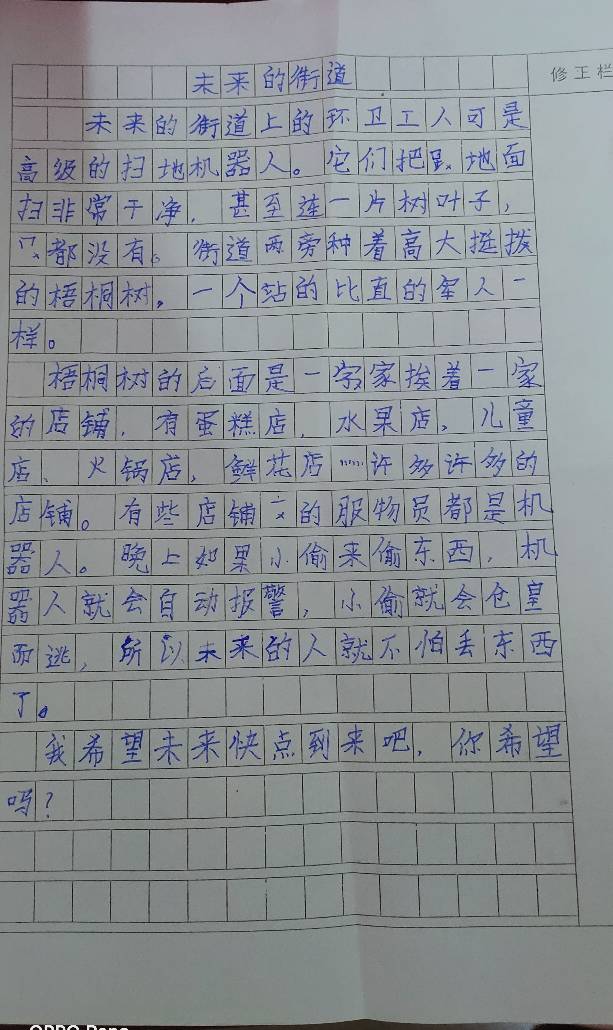 未来的街道
修正栏
未来的街道上的环卫工人可是
高级的扫地机器人。它们把地面
扫非常干净，甚至连一片树叶子，
都没有。街道两旁种着高大挺拨
的梧桐树，一个站的比直的军人一
样。
梧桐树的后面是一家挨着一家
的店铺，有蛋糕店，水果店，儿童
店、火锅店，鲜花店……许多许多的
店铺。有些店铺的服物员都是机
器人。晚上如果小偷来偷东西，机
器人就会自动报警，小偷就会仓皇
而逃，所以未来的人就不怕丢东西
了。
我希望未来快点到来吧，你希望
吗？